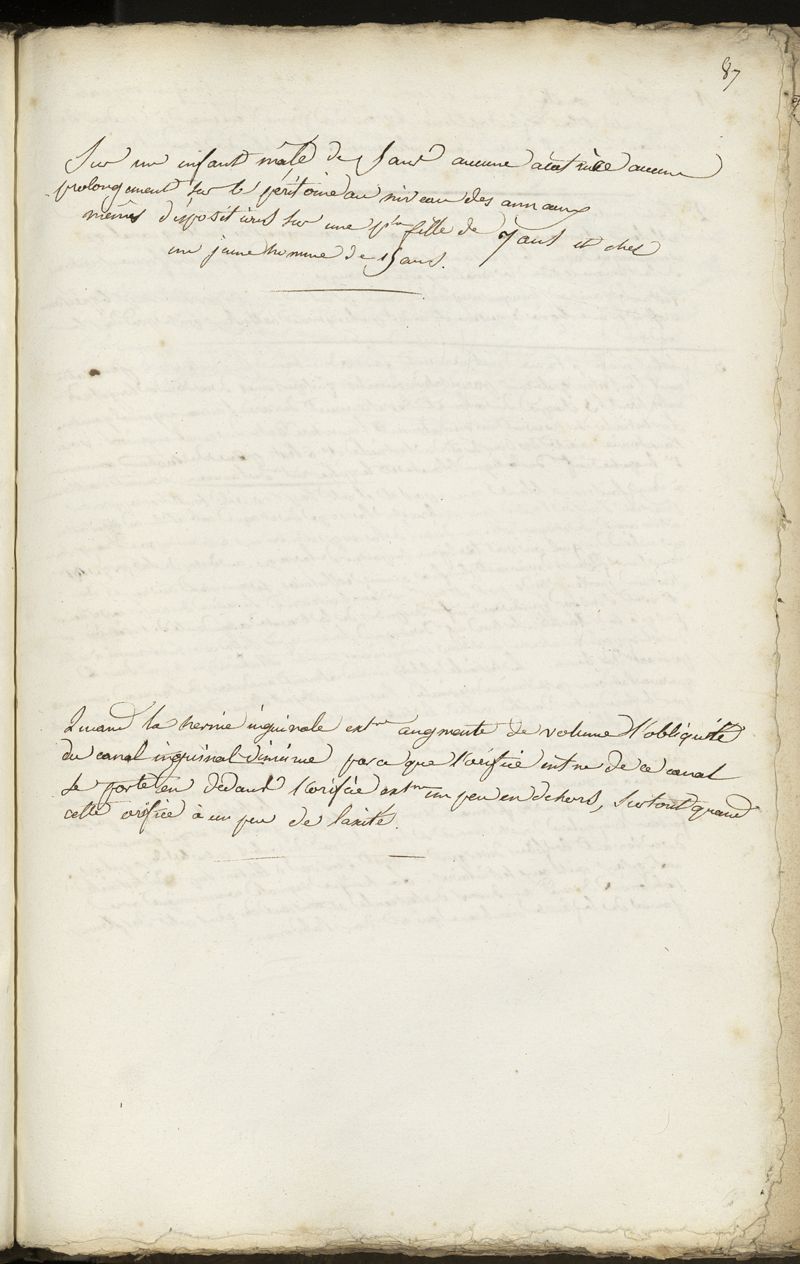 87
Sur un infant mâle de 5 ans aucune cicatrice aucun
prolongement sur le péritoine au niveau des anneaux
mêmes dispositions sur une pte fille de 7 ans et chez
un jeune homme de 15 ans.
Quand la hernie inguinale extne augmente de volume l'obliquité
du canal inguinal diminue parce que l'orifice intne de ce canal
se porte en dedans l'orifice extne un peu en dehors, surtout quand
cette orifice à un peu de laxité.